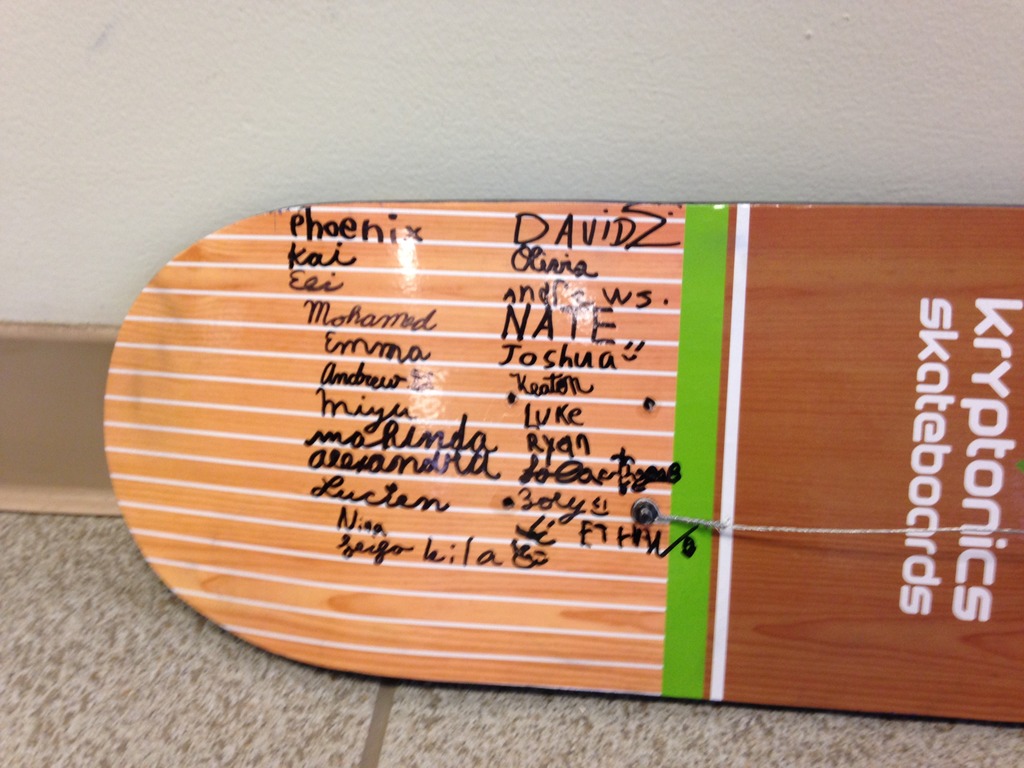 Phoenix
Kai
Eli
Mohamed
Emma
Andrew
Miyu
mahinda
alexandra
Lucien
Nina
kila
DAVID S.
Olivia
WS.
NATE
Joshua
Keaton
LUKE
RYan
Zoey
ETHAN
kryptonics
skateboards